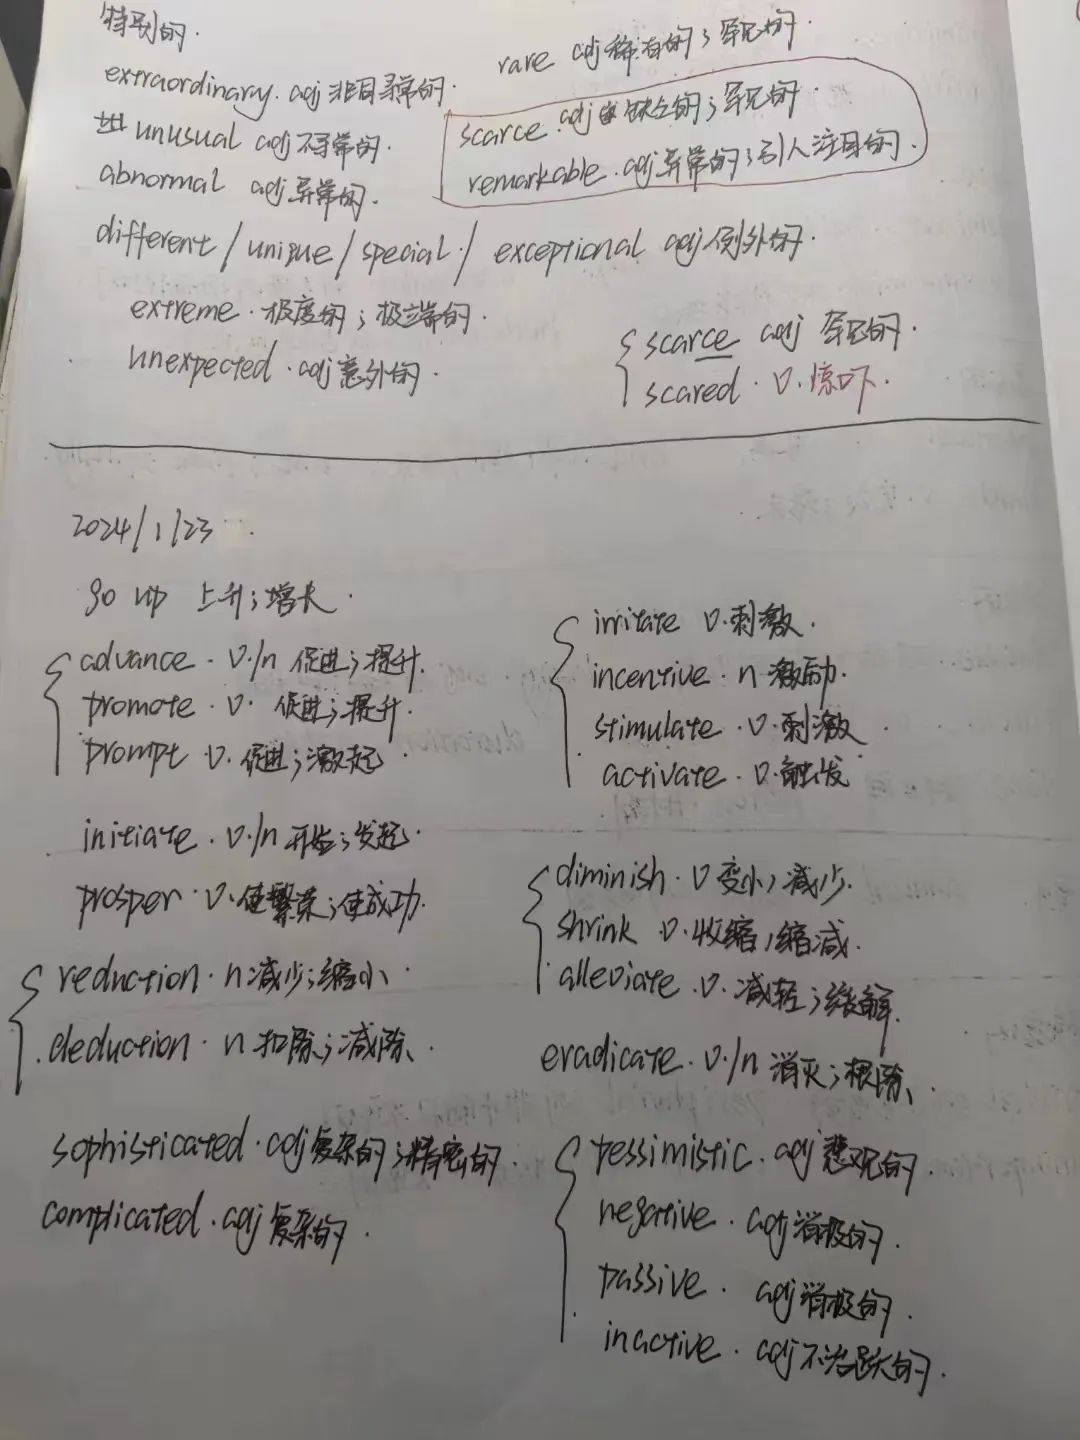 特别的.
extraordinary. adj 非同寻常的.
unusual adj 不寻常的.
abnormal adj 异常的.
rare adj 稀有的；罕见的.
scarce. adj 缺乏的；罕见的.
remarkable. adj 异常的；引人注目的.
different / unique / special / exceptional adj 例外的.
extreme. 极度的；极端的.
unexpected. adj 意外的.
scarce adj 罕见的.
scared. v. 惊吓.
2024/1/23
go up 上升；增长.
advance. v./n 促进；提升.
promote. v. 促进；提升.
prompt v. 促进；激起.
initiate. v./n 开始；发起.
prosper. v. 使繁荣；使成功.
reduction. n 减少；缩小.
deduction. n 扣除；减除.
sophisticated. adj 复杂的；精密的.
complicated. adj 复杂的.
irritate v. 刺激.
incentive. n 激励.
stimulate. v. 刺激
activate. v. 触发
diminish. v 变小，减少.
shrink v. 收缩，缩减.
alleviate. v. 减轻；缓解.
eradicate. v./n 消灭；根除.
pessimistic. adj 悲观的.
negative. adj 消极的.
passive. adj 消极的.
inactive. adj 不活跃的.